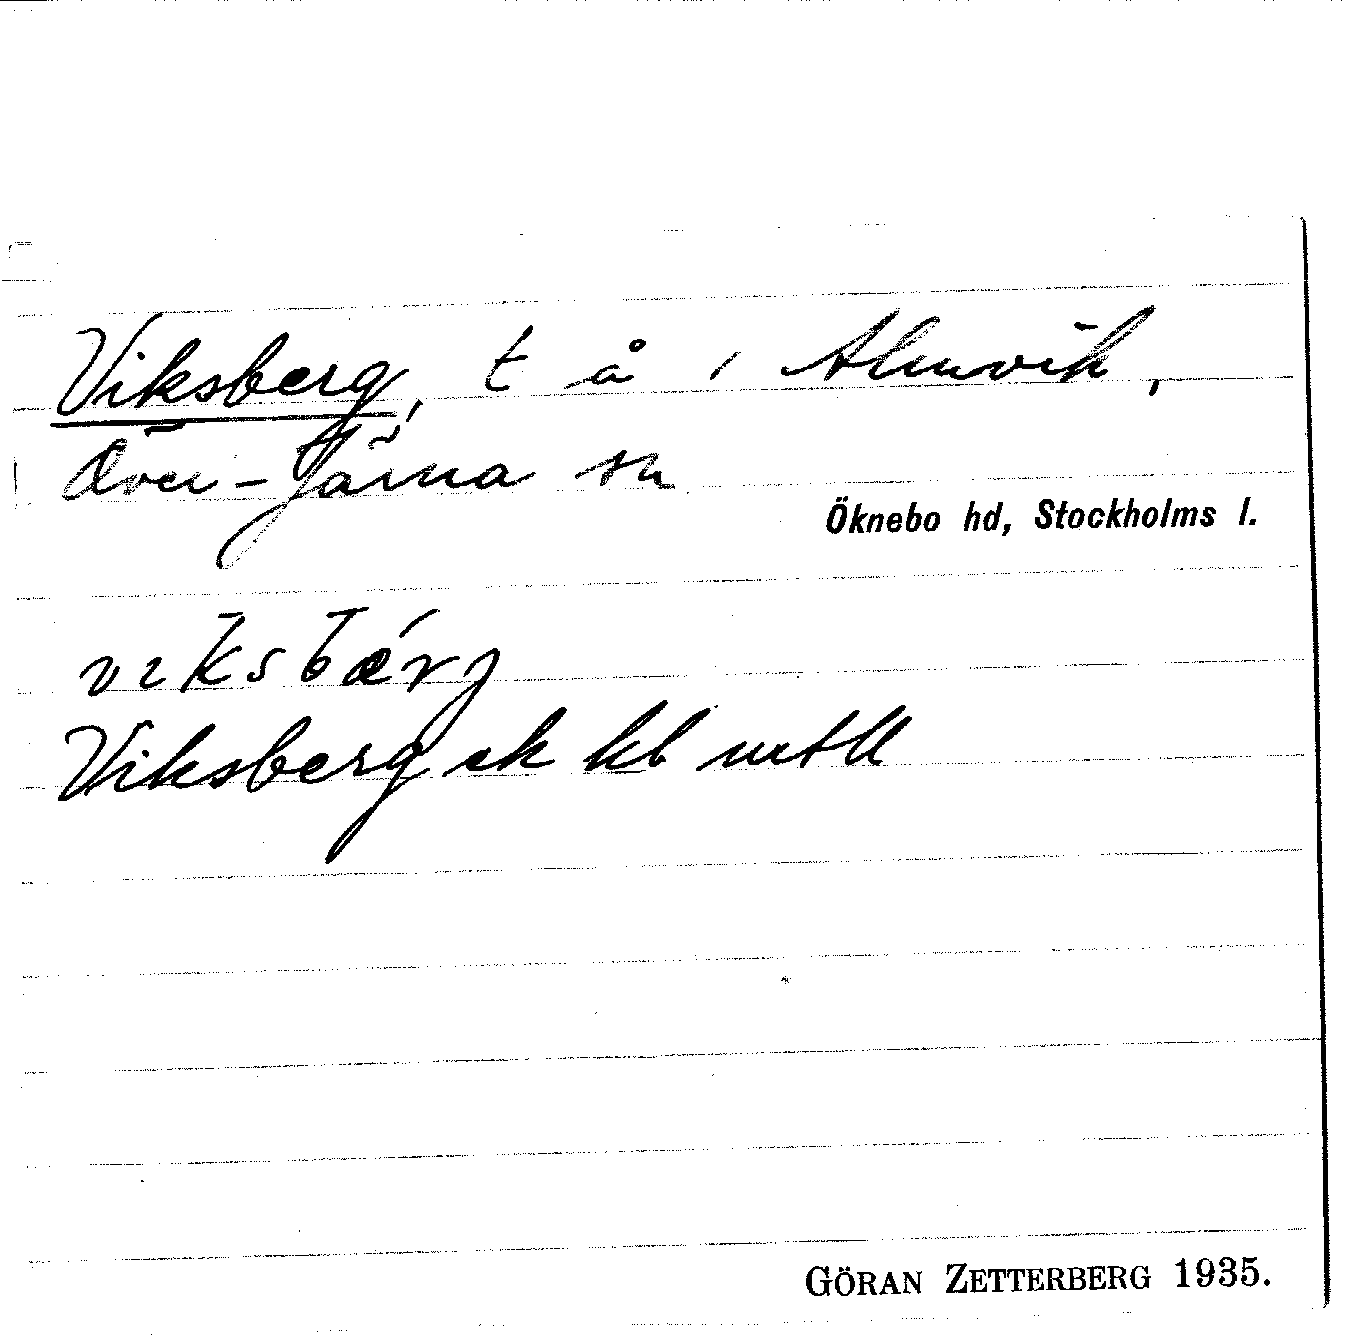 Viksberg, t å i Almvik,
Över-Järna sn
Öknebo hd, Stockholms l.
vɩksbærj
Viksberg ek kb mtll
GÖRAN ZETTERBERG 1935.